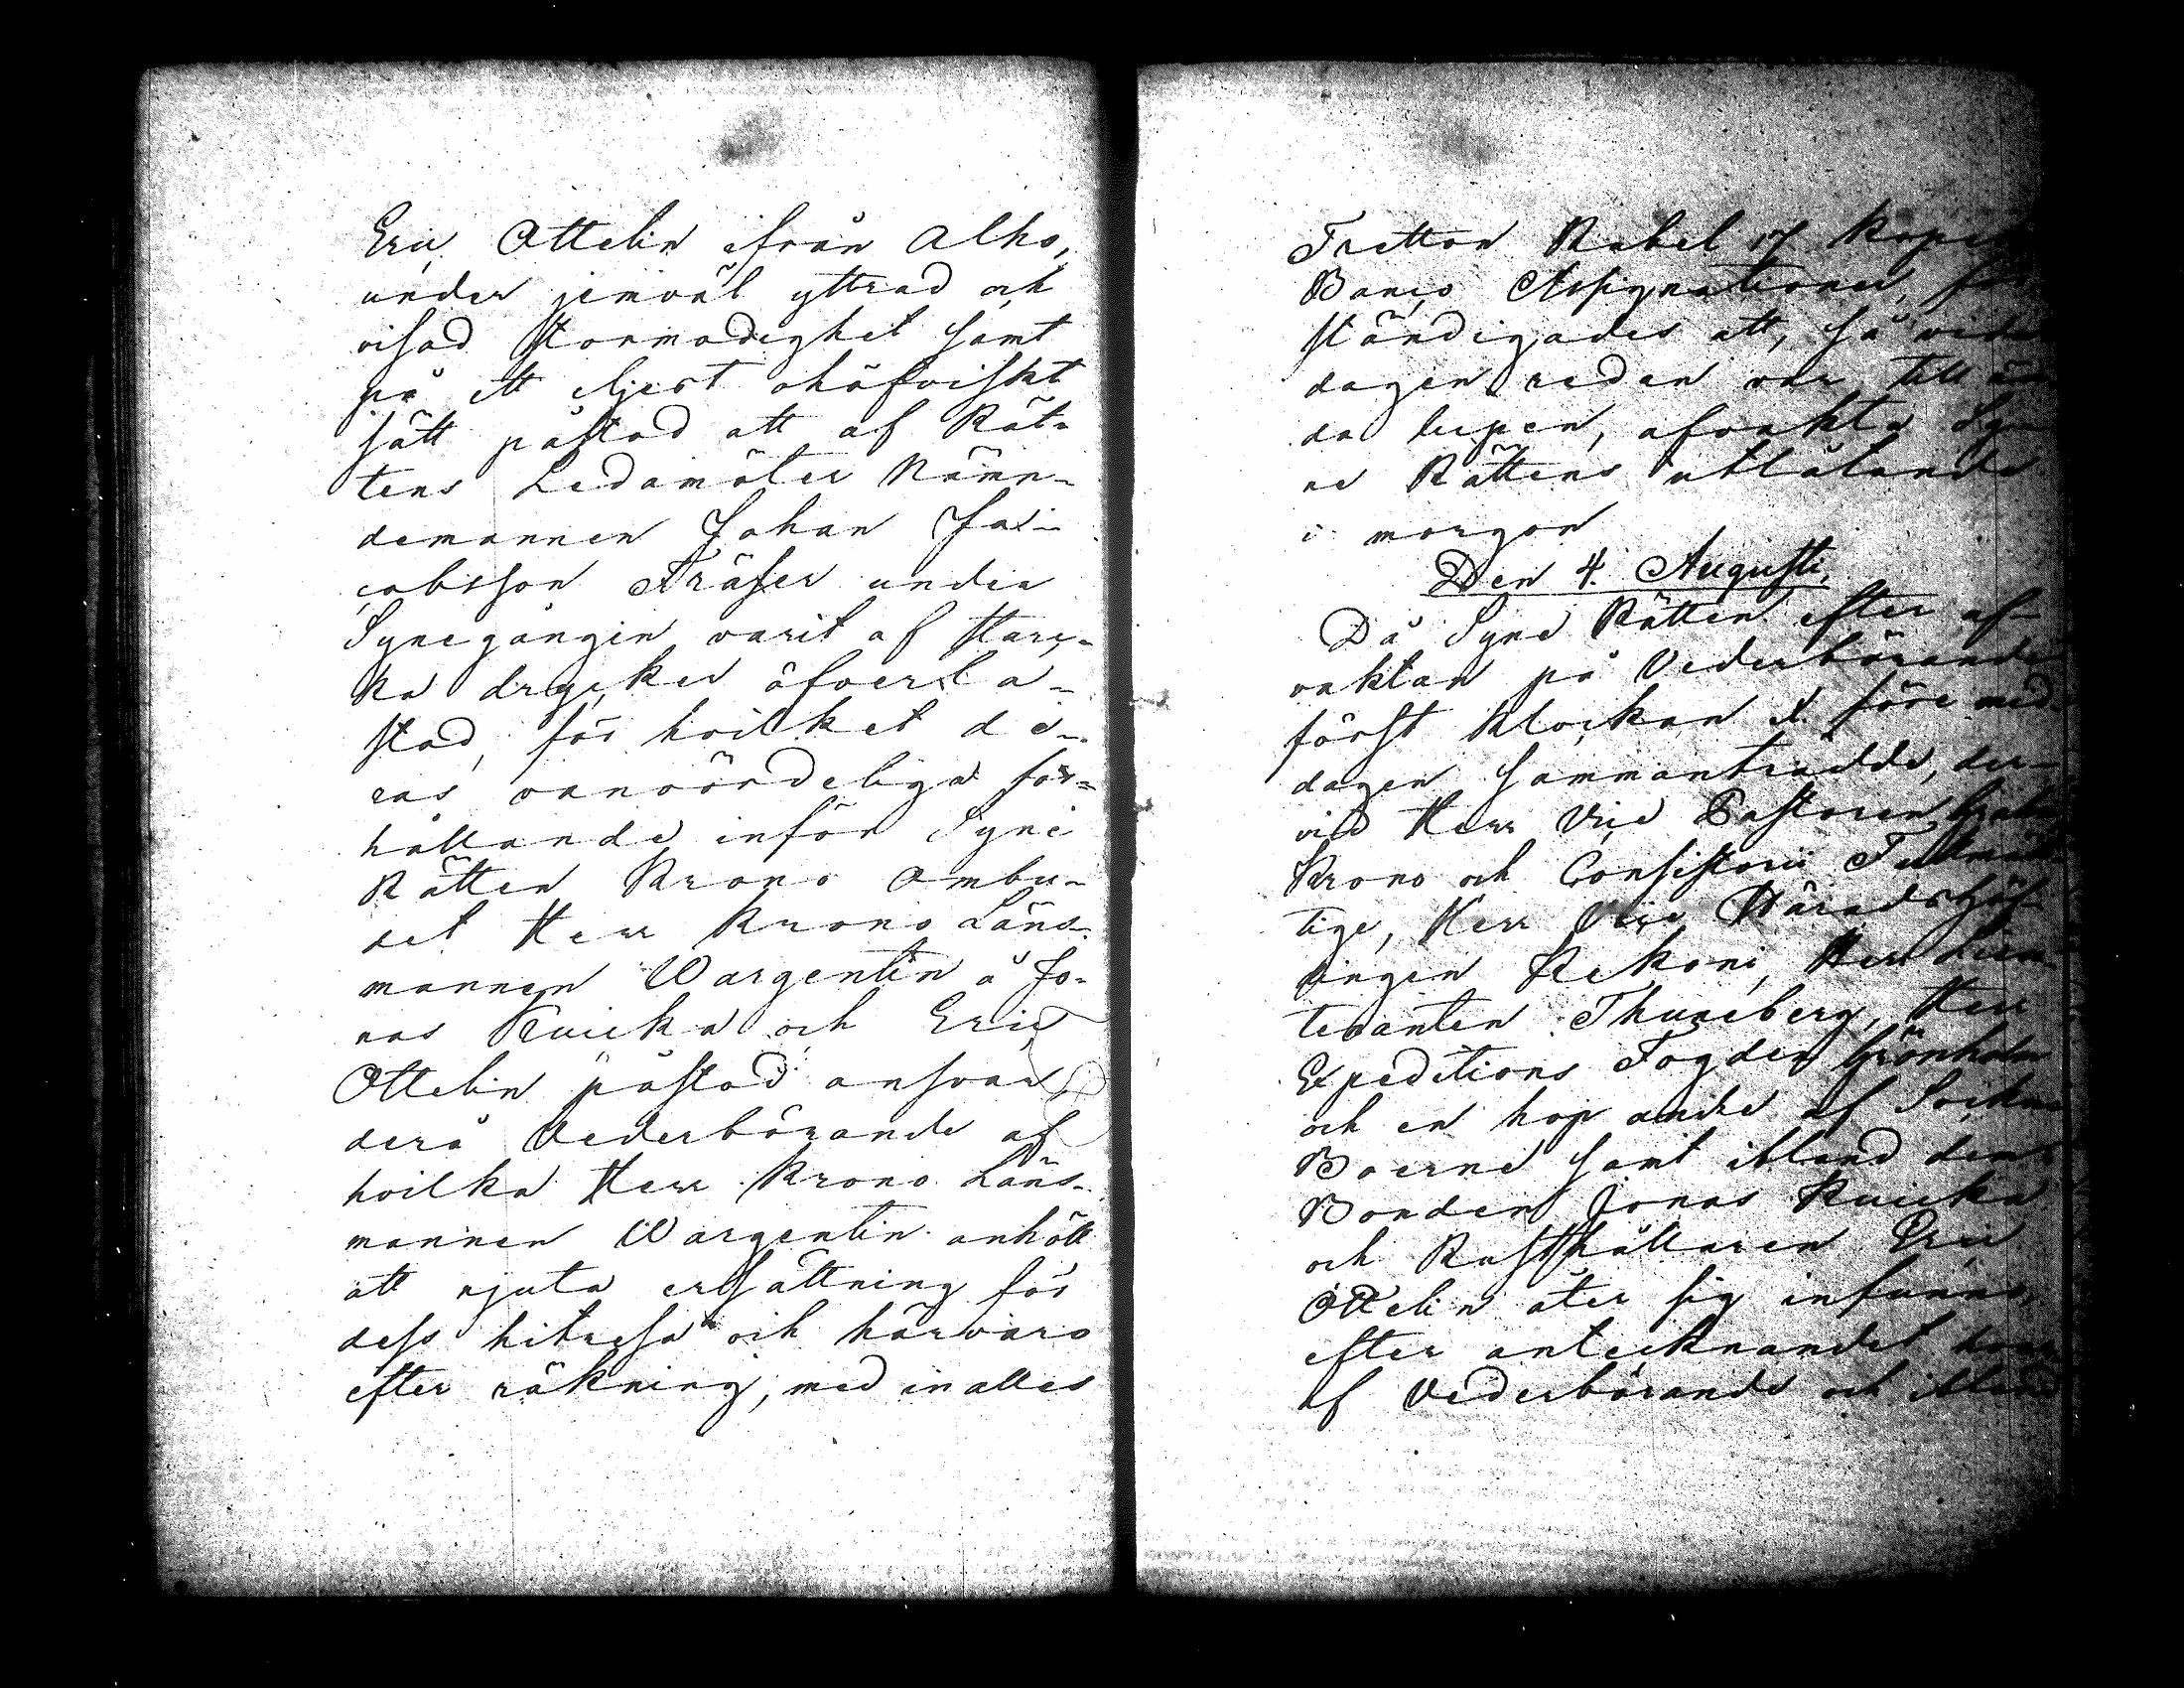 Eric Ottelin ifrån Alho,
under jemväl yttrad och
visad stormodighet samt
på ett eljest ohöfviskt
sätt påstod att af Rät-
tens Ledamöter Nämn-
demannen Johan Ja-
cobsson Träser under
Synegången varit af star-
ka drycker öfverla-
stad, för hvilket de-
ras vanvördeliga för-
hållande inför Syne
Rätten Krono Ombu-
det Herr Krono Läns-
mannen Wargentin å Jo-
nas Kuicka och Eric
Ottelin påstod ansvar
derå Vederbörande af
hvilka Herr Krono Läns-
mannen Wargentin anhöll
att njuta ersättning för
dess hitresa och härwaro
efter räkning, med in alles
Tretton Rubel 17 Kopek
Banco Assignationer, för
ständigades att, så vida
dagen redan var till än
da lupen, afvakta Sy
ne Rättens utlåtande
i morgon
Den 4. Augusti.
Då Syne Rätten efter af-
vaktan på Vederbörande
först Klockan X före med
dagen sammanträdde, der-
vid Herr Vice Pastoren
Krono och Consistorii Fullmäk
tige, Herr Vice Häradshöf-
dingen Kekoni, Herr Lieu-
tenanten Thuneberg, Herr
Expeditions Fogden Grönholm
och en hop andre af Sockne
Boerne samt ibland dem
Bonden Jonas Kuicka
och Rusthållaren Eric
Ottelin åter sig infunno,
efter antecknandet hvar
af Vederbörande och ibland